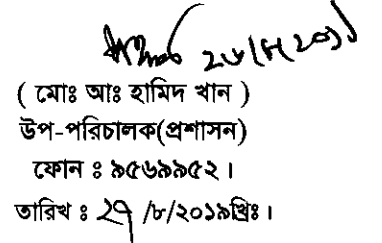 ( মোঃ আঃ হামিদ খান )
উপ-পরিচালক(প্রশাসন)
ফোন ঃ ৯৫৬৯৯৫২।
তারিখ ঃ ২৭ /৮/২০১৯খ্রিঃ।